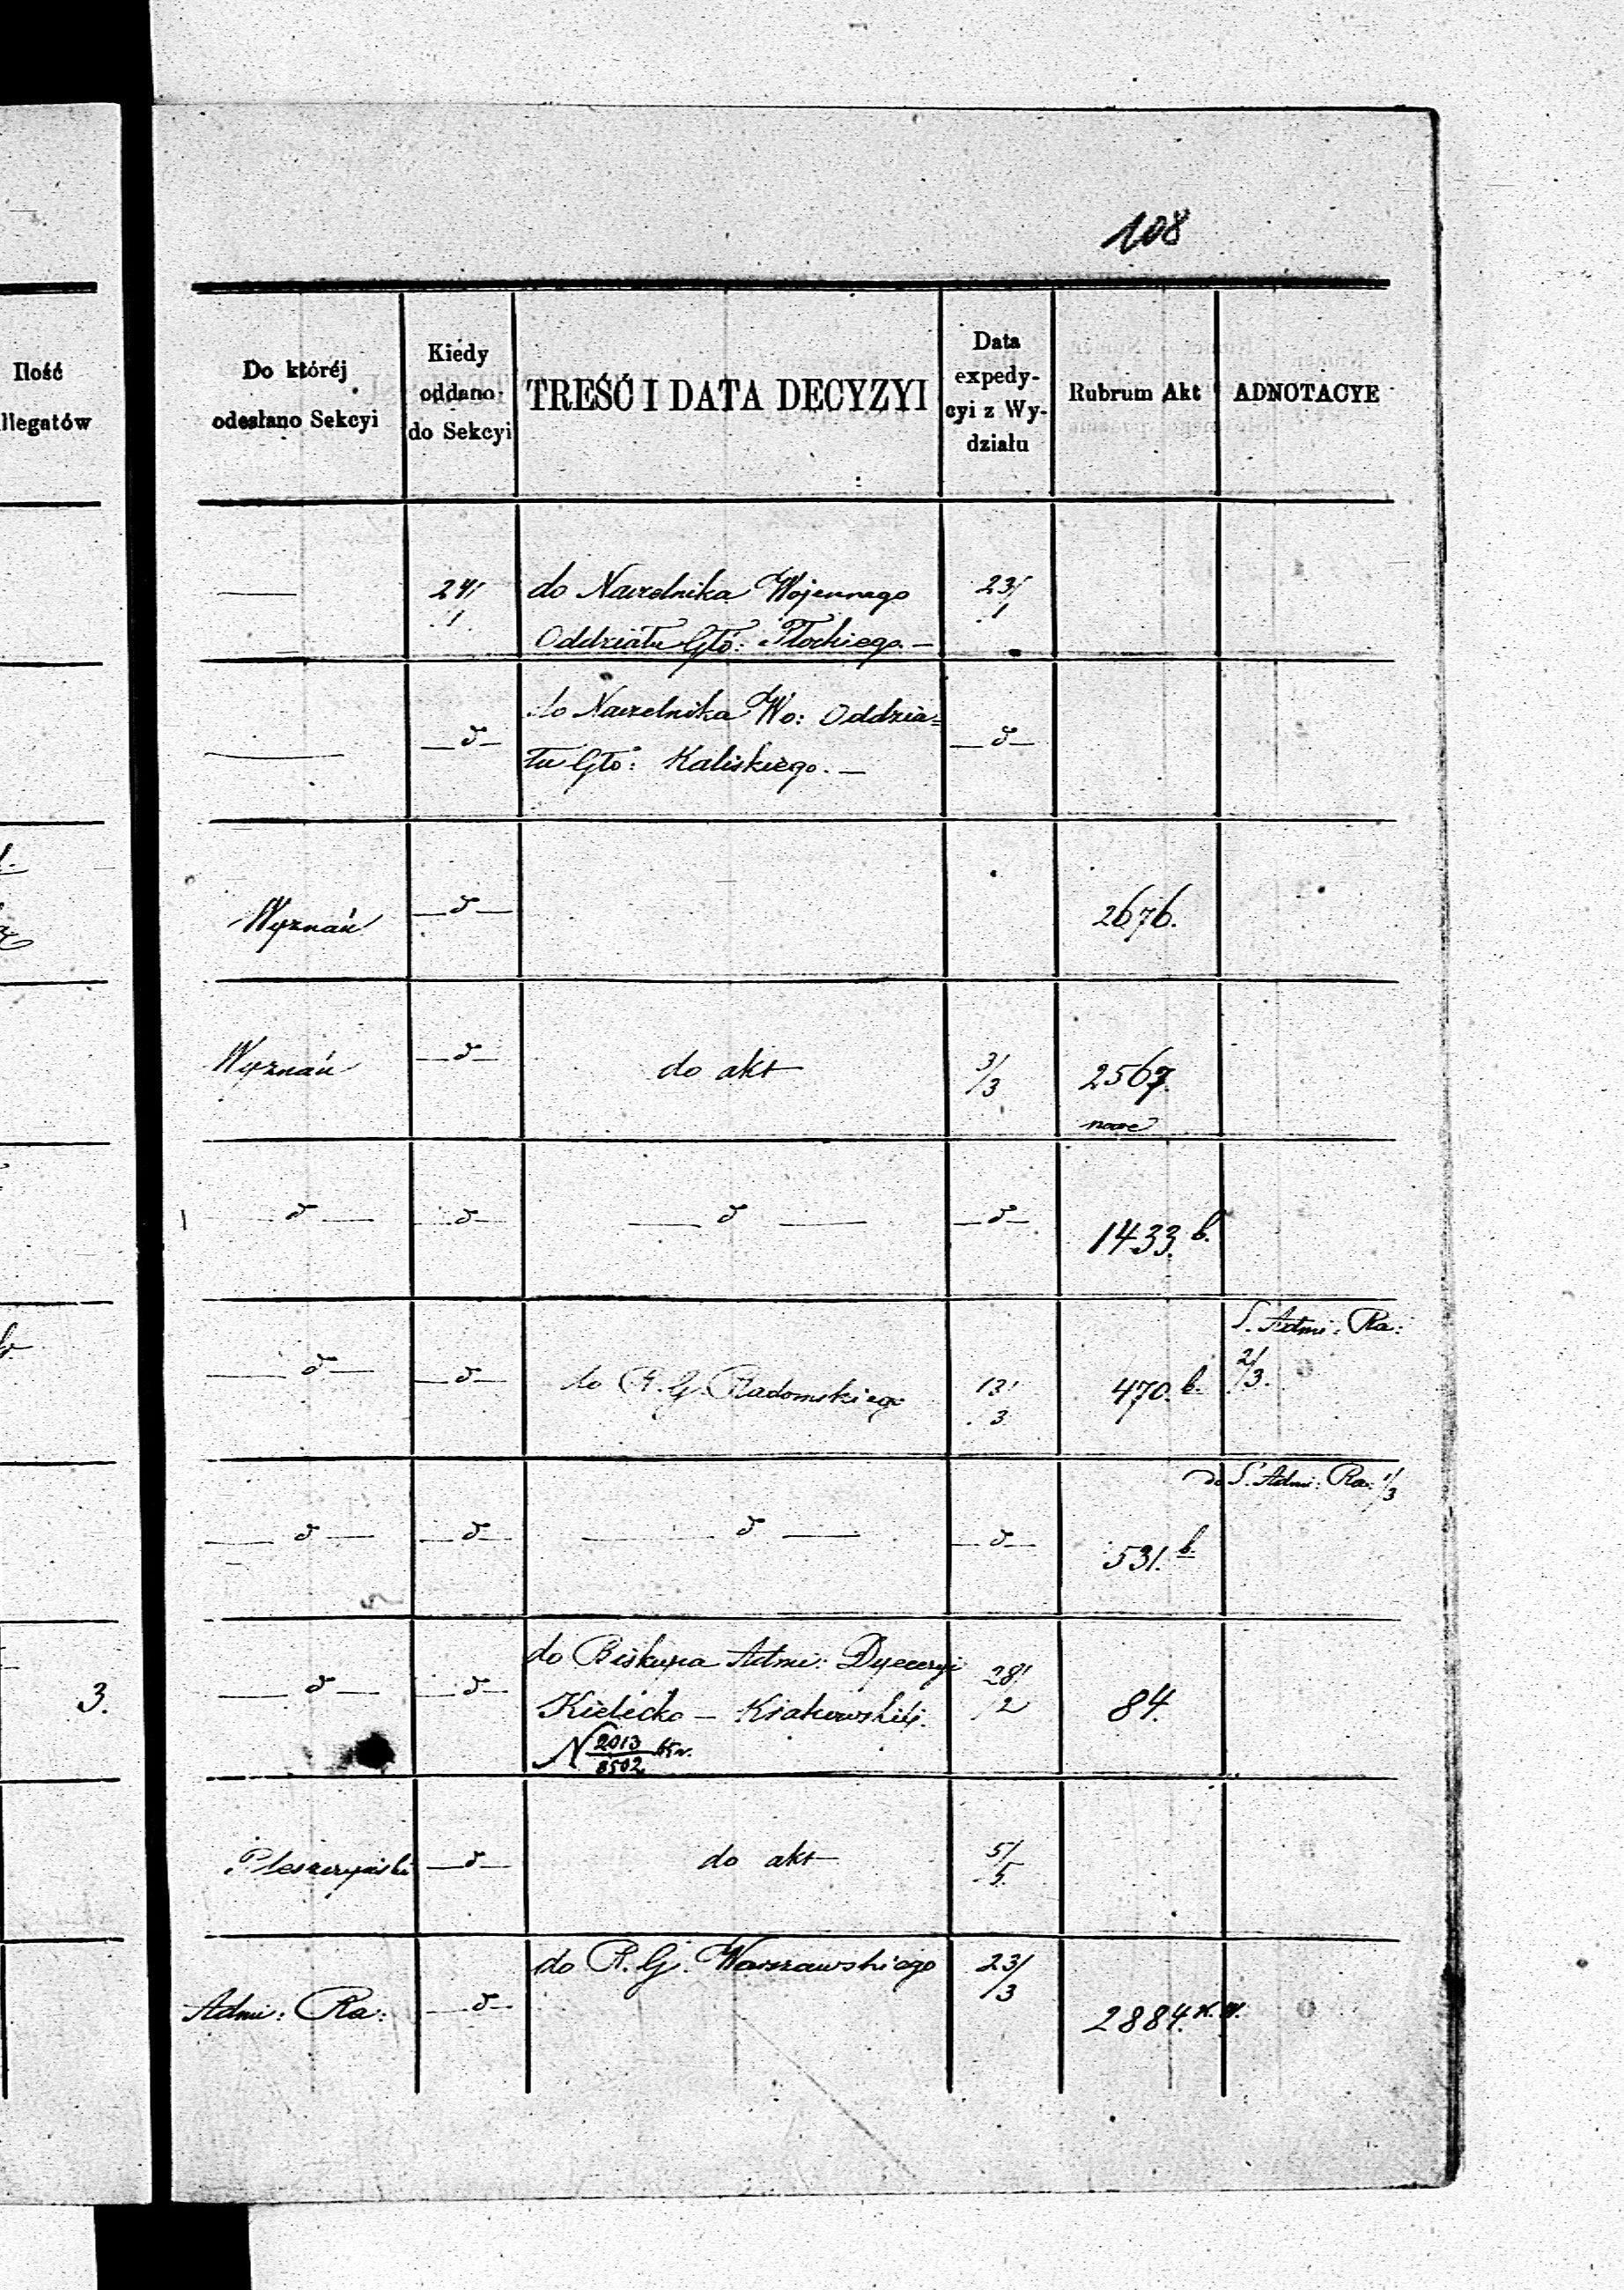 108
Ilość
llegatów
Do któréj
odesłano Sekcyi
Kiedy
oddano
do Sekcyi
TREŚĆ I DATA DECYZYI
Data
expedy-
cyi z Wy-
działu
Rubrum Akt
ADNOTACYE
24/1
do Naczelnika Wojennego
Oddziału Głó: Płockiego. —
23/1
— d —
do Naczelnika Wo: Oddzia=
łu Głó: Kaliskiego. —
— d —
Wyznań
— d —
2676.
Wyznań
— d —
do akt
3/3
2567.
nowe
— d —
— d —
— d —
— d —
1433. b.
— d —
— d —
do R. G. Radomskiego
13/3
470. b.
S. Admi: Ra:
2/3.
— d —
— d —
— d —
— d —
531. b.
do S. Admi: Ra: 1/3
3.
— d —
— d —
do Biskupa Admi: Dyecezyi
Kielecko — Krakowskiéj.
N 2013/8502
28/2
84.
Pleszczyński
— d —
do akt
5/5.
Admi: Ra:
— d —
do R. G. Warszawskiego
23/3
2884. K. W.